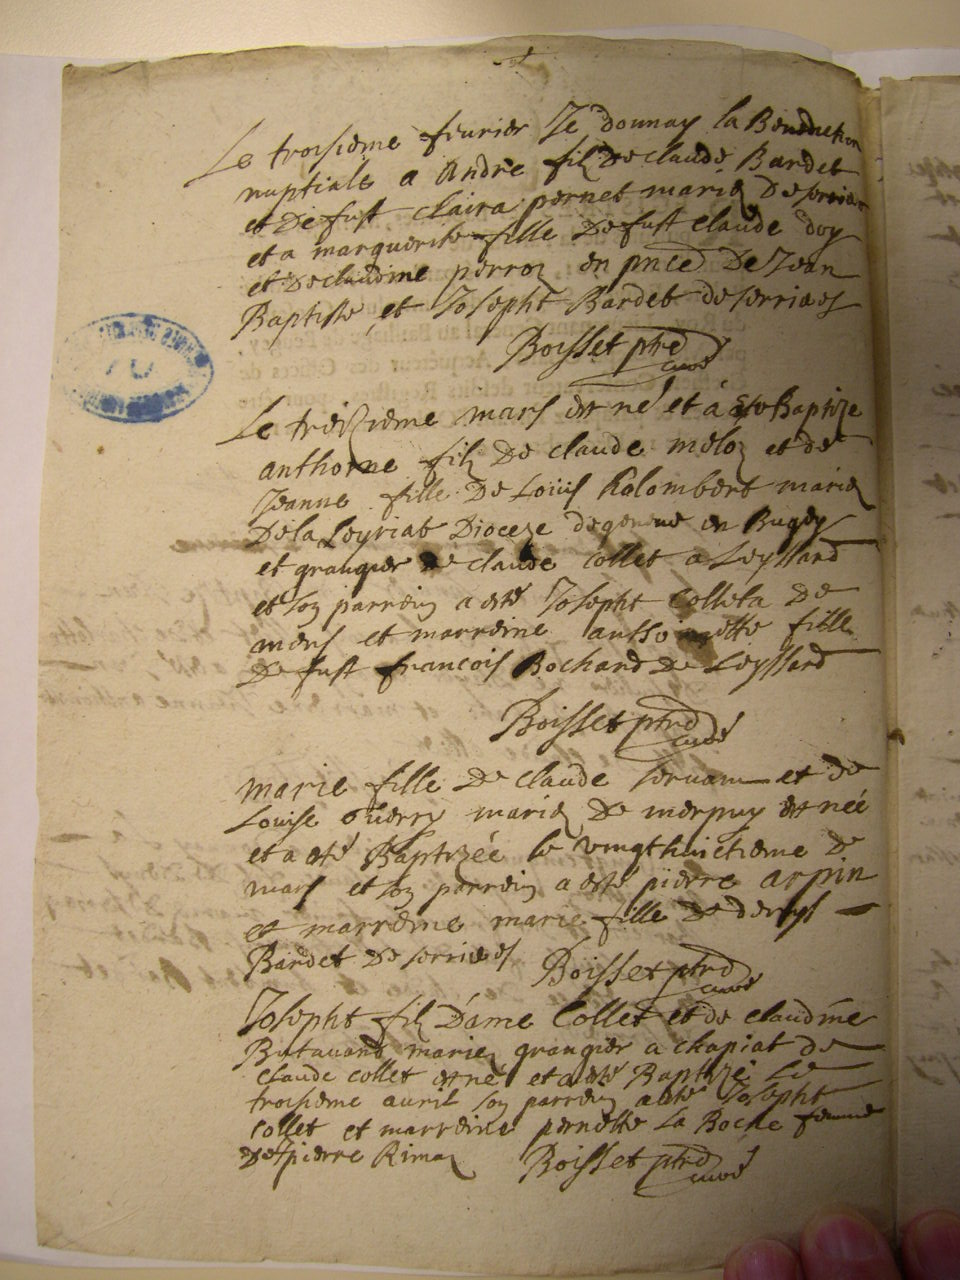 Le troisieme fevrier Je donnay la Benediction
nuptiale a Andre filz de claude Bardet
et de fust claira pernet mariez de serrieres
et a marguerite fille de fust claude doy
et de claudine perroz en pnce De Jean
Baptiste et Josepht Bardet de serrieres
Boisset ptre
curé
Le treizieme mars est né et a esté Baptize
anthoine filz De claude meloz et de
Jeanne fille De Loüis Kolombert mariez
De la Leyriat Dioceze de geneve en Bugey
et grangier de claude Collet a Leyssard
et son parrein a esté Josepht Colleta De
mens et marreine fille
De fust francois Bochard de Leyssard
Boisset ptre
curé
marie fille de claude servam et de
Louise mariez de merpuy est née
et a eté Baptizée le vingthuictieme de
mars et son parrein a esté pierre arpin
et marreine marie fille de denys
Bardet de serrieres
Boisset ptre
curé
Josepht filz D'ame Collet et de claudine
Butavand mariez grangier a chapiat de
claude collet est né et a esté Baptizé Le
troisieme avril son parrein a esté Josepht
Collet et marreine pernette La Boche femme
De pierre Rimaz
Boisset ptre
curé